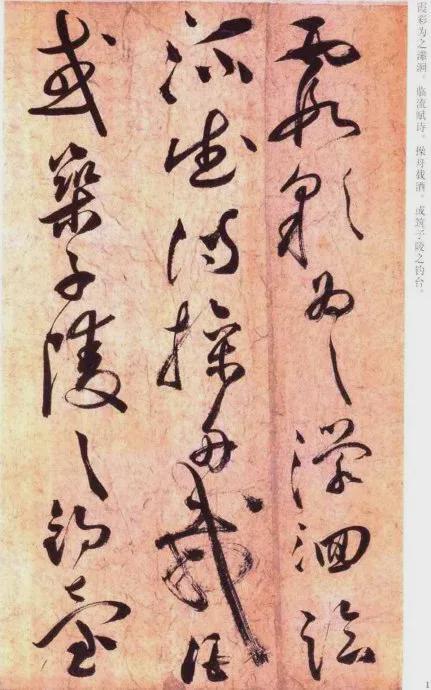 霞彩为之潆洄。临流赋诗。操舟载酒。或筑子陵之钓台。
霞彩為之瀠洄臨
流賦詩操舟載酒
或築子陵之釣臺
1